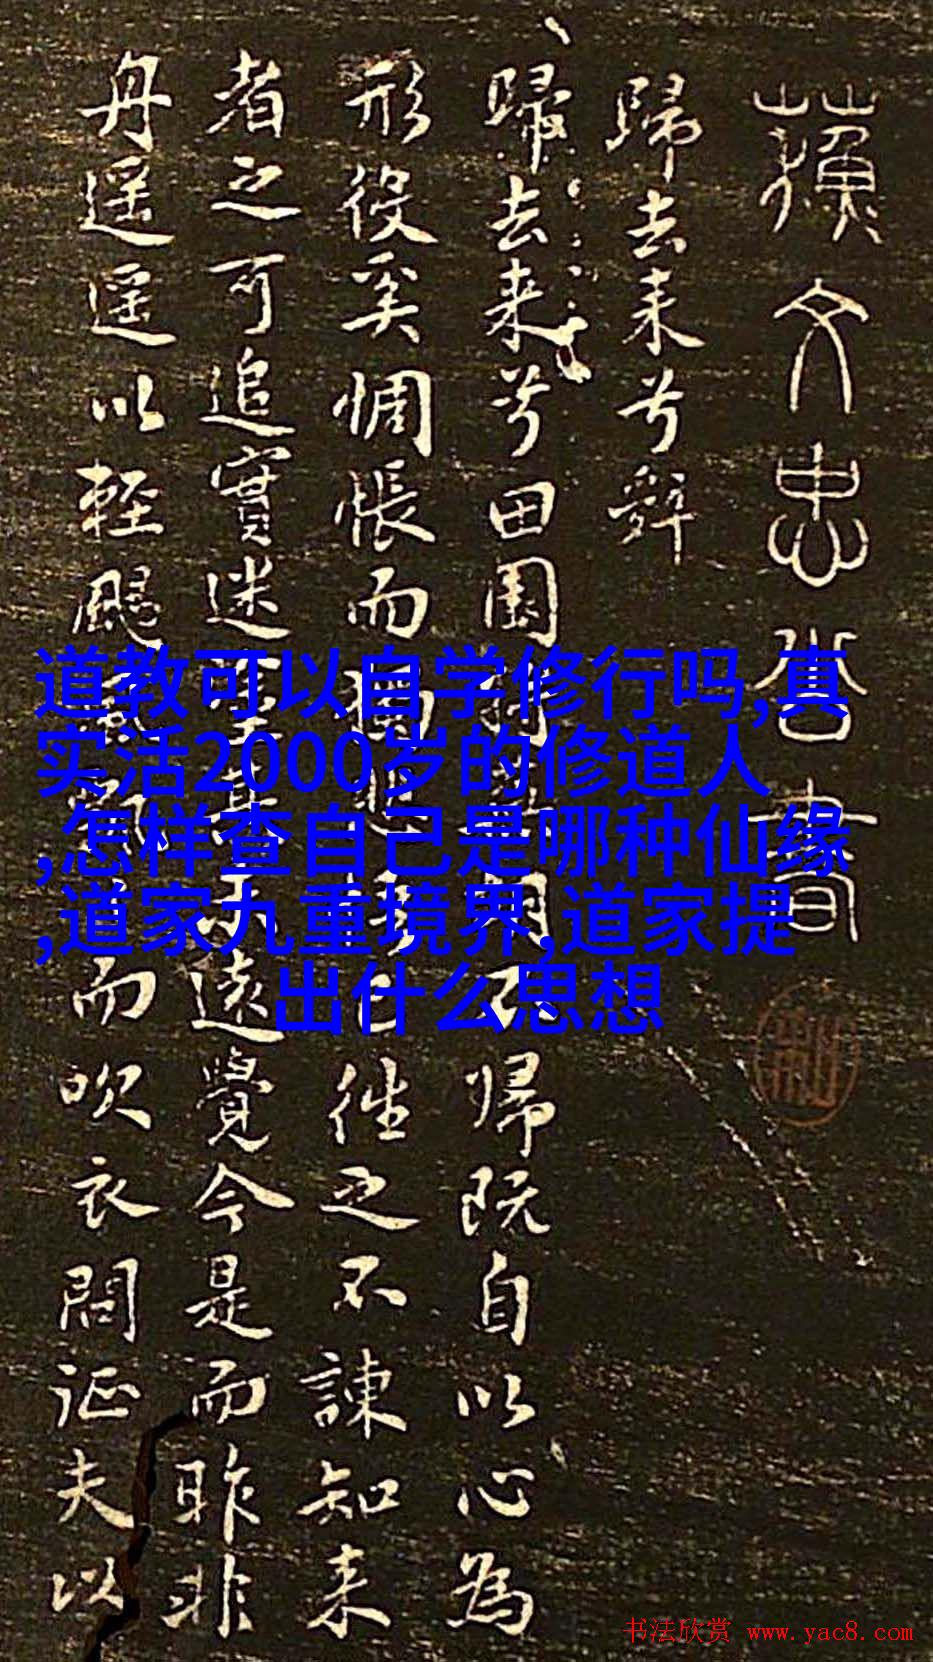 蘓文忠公書
歸去来兮辤
歸去来兮田園胡不帰既自以心為
形役奚惆悵而獨悲已往之不諫知来
者之可追實迷其遠覺今是而昨非
舟遥遥以輕颺而吹衣問征夫以
道教可以自学修行吗,真
实活2000岁的修道人
,怎样查自己是哪种仙缘
,道家九重境界,道家提
出什么思想
书法欣赏 www.yac8.com